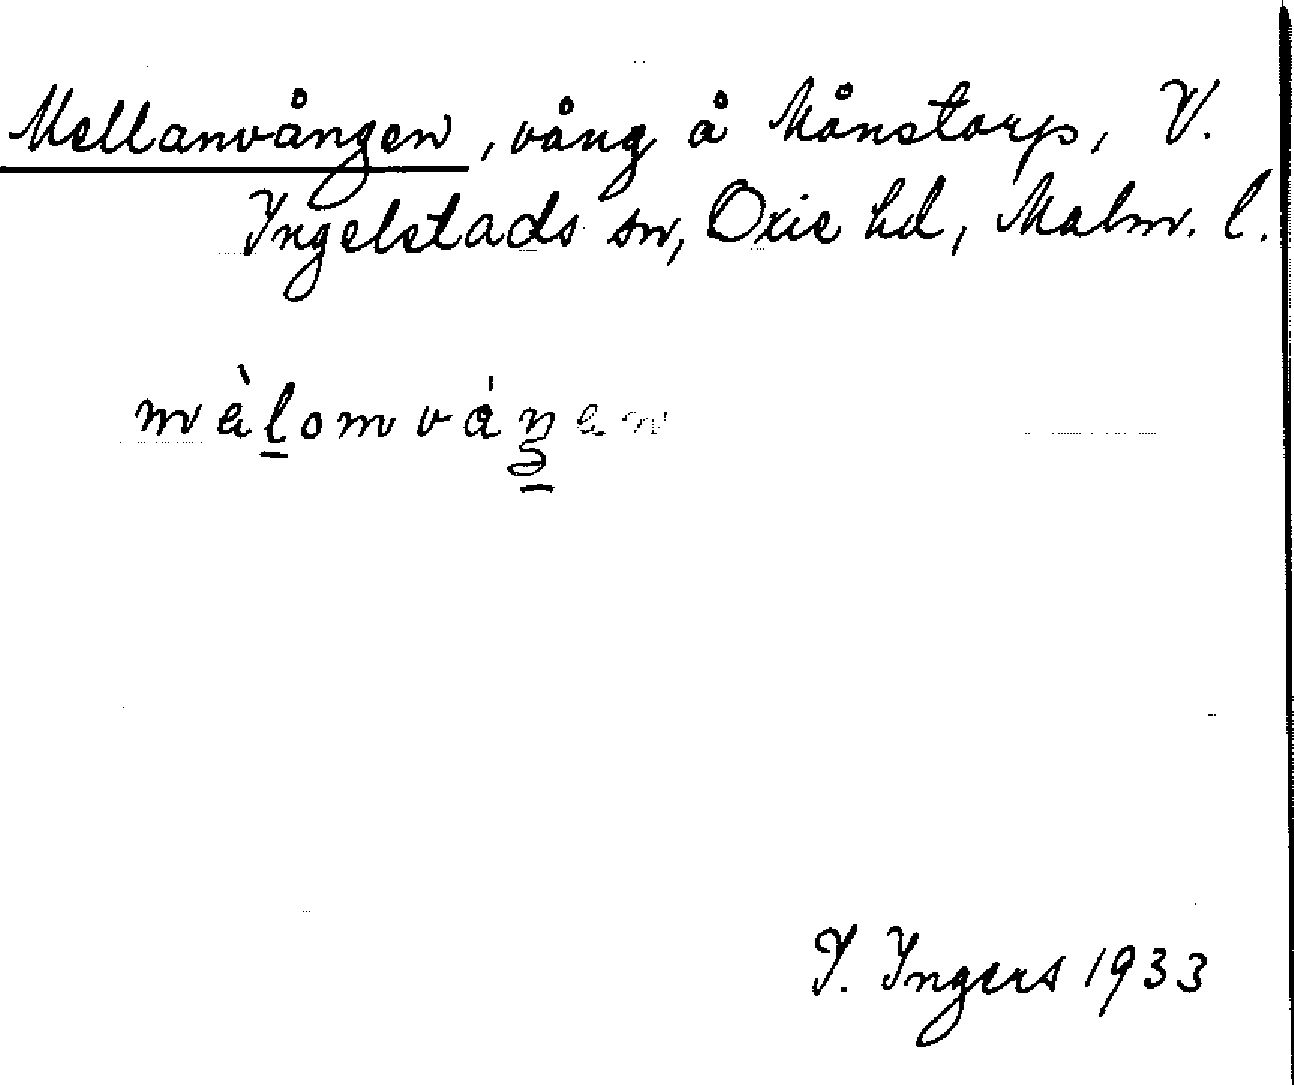 Mellanvången, vång å Månstorp, V.
Ingelstads sn, Oxie hd, Malm. l.
mèl̲omváŋ̲en
I. Ingers 1933